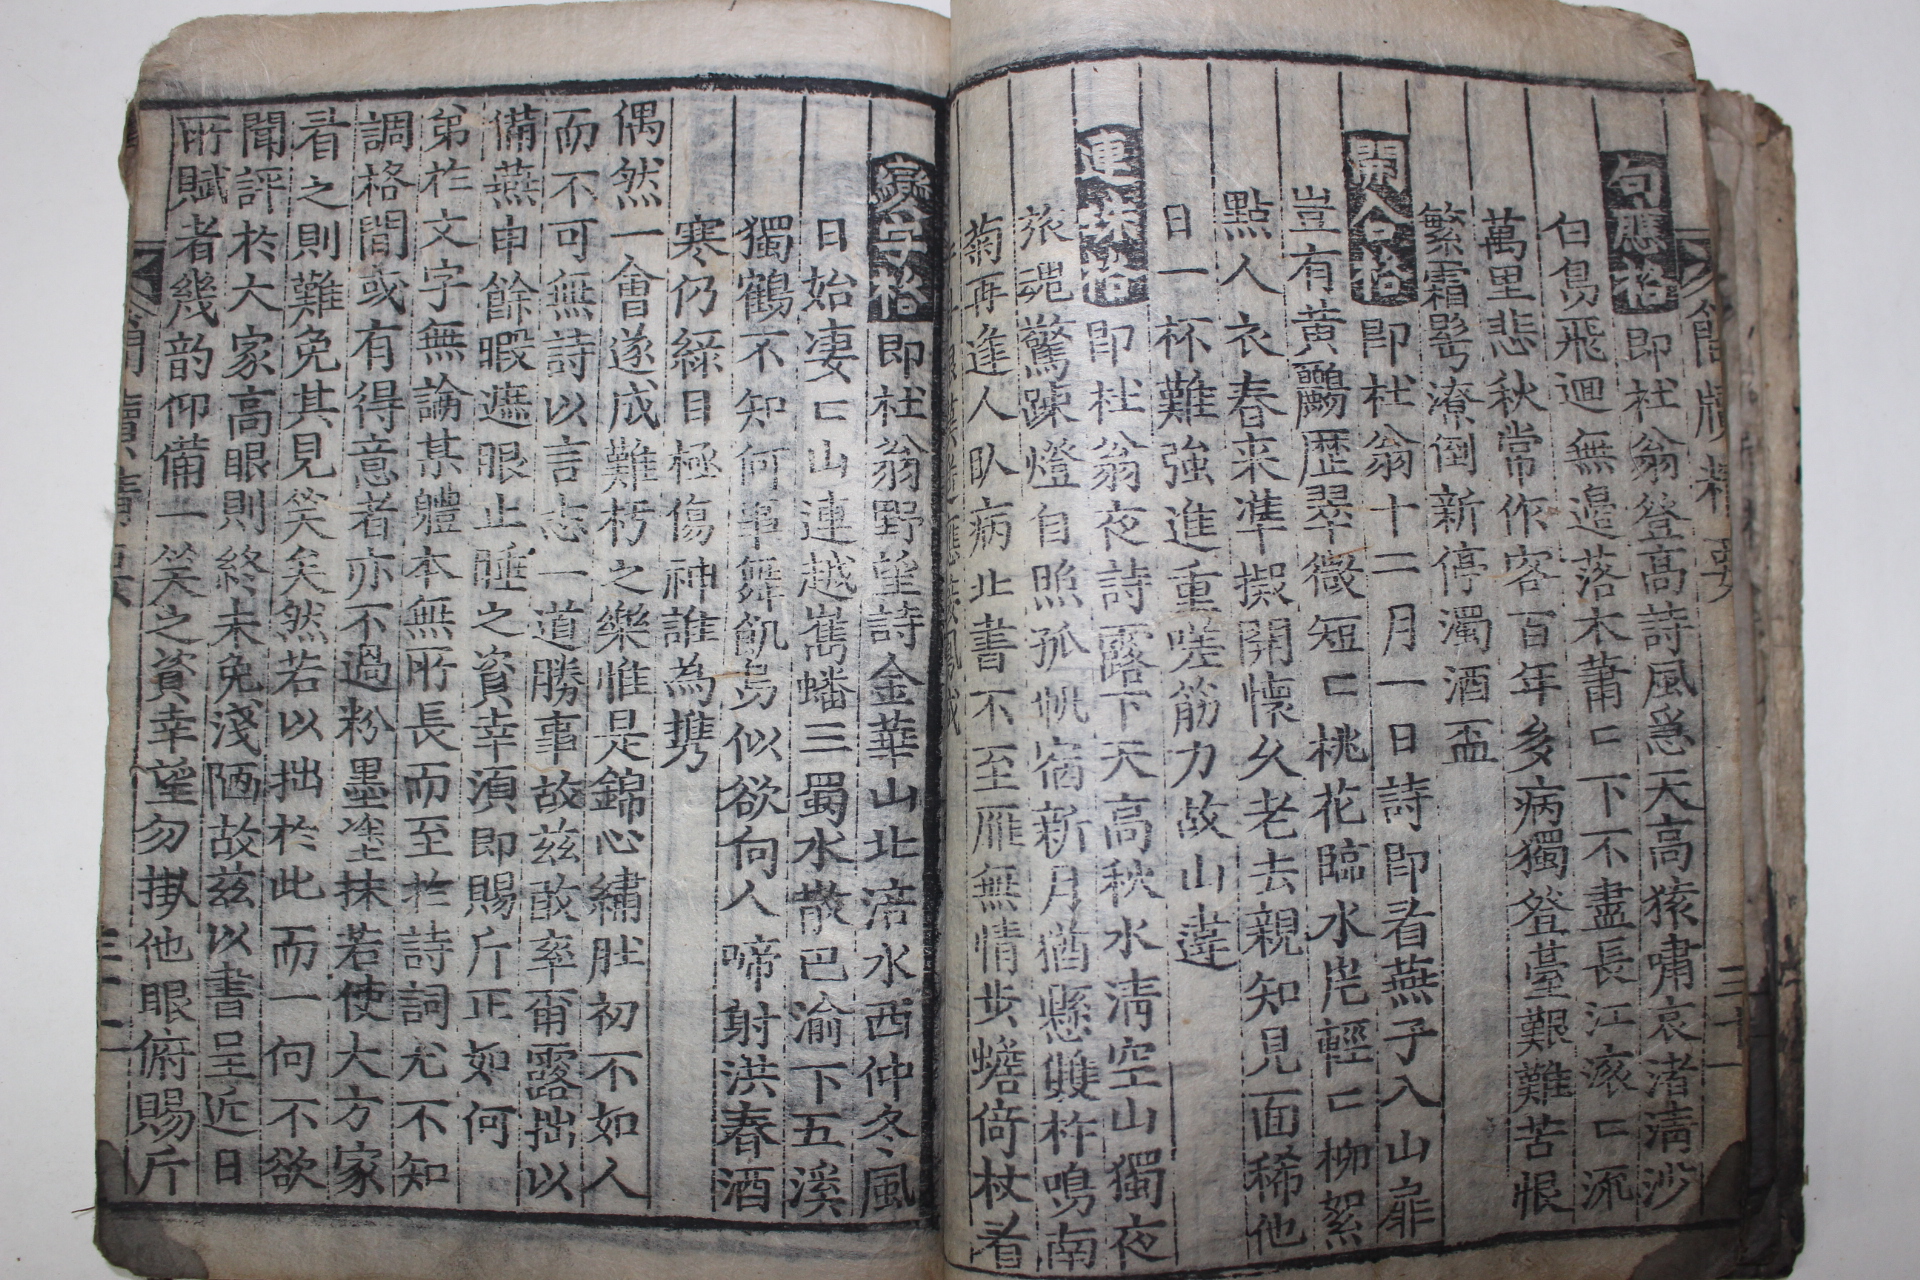 簡牘精要
三十一
句應格 即杜翁登高詩風急天高猿嘯哀渚淸沙
白鳥飛迴無邊落木蕭〻下不盡長江滚〻流
萬里悲秋常作客百年多病獨登䑓艱難苦恨
繁霜鬂潦倒新停濁酒盃
開合格 即杜翁十二月一日詩即看燕子入山扉
豈有黃鸝歷翠微短〻桃花臨水岸輕〻柳絮
點人衣春来準擬開懷久老去親知見面稀他
日一杯難強進重嗟筋力故山違
連珠格 即杜翁夜詩露下天高秋水淸空山獨夜
旅魂驚踈燈自照孤帆宿新月猶懸雙杵鳴南
菊再逢人臥病北書不至雁無情步蟾倚杖看
字格 即杜翁野望詩金華山北涪水西仲冬風
日始凄〻山連越嶲蟠三蜀水散巴渝下五溪
獨鶴不知何事舞飢烏似欲向人啼射洪春酒
寒仍綠目極傷神誰為携
偶然一會遂成難朽之樂惟是錦心繡肚初不如人
而不可無詩以言志一道勝事故玆敢率爾露拙以
備燕申餘暇遮眼止睡之資幸須即賜斤正如何
弟於文字無論某體本無所長而至於詩詞尤不知
調格間或有得意者亦不過粉墨塗抹若使大方家
看之則難免其見笑矣然若以拙於此而一向不欲
聞評於大家高眼則終未免淺陋故玆以書呈近日
所賦者幾韵仰備一笑之資幸望勿掛他眼俯賜斤